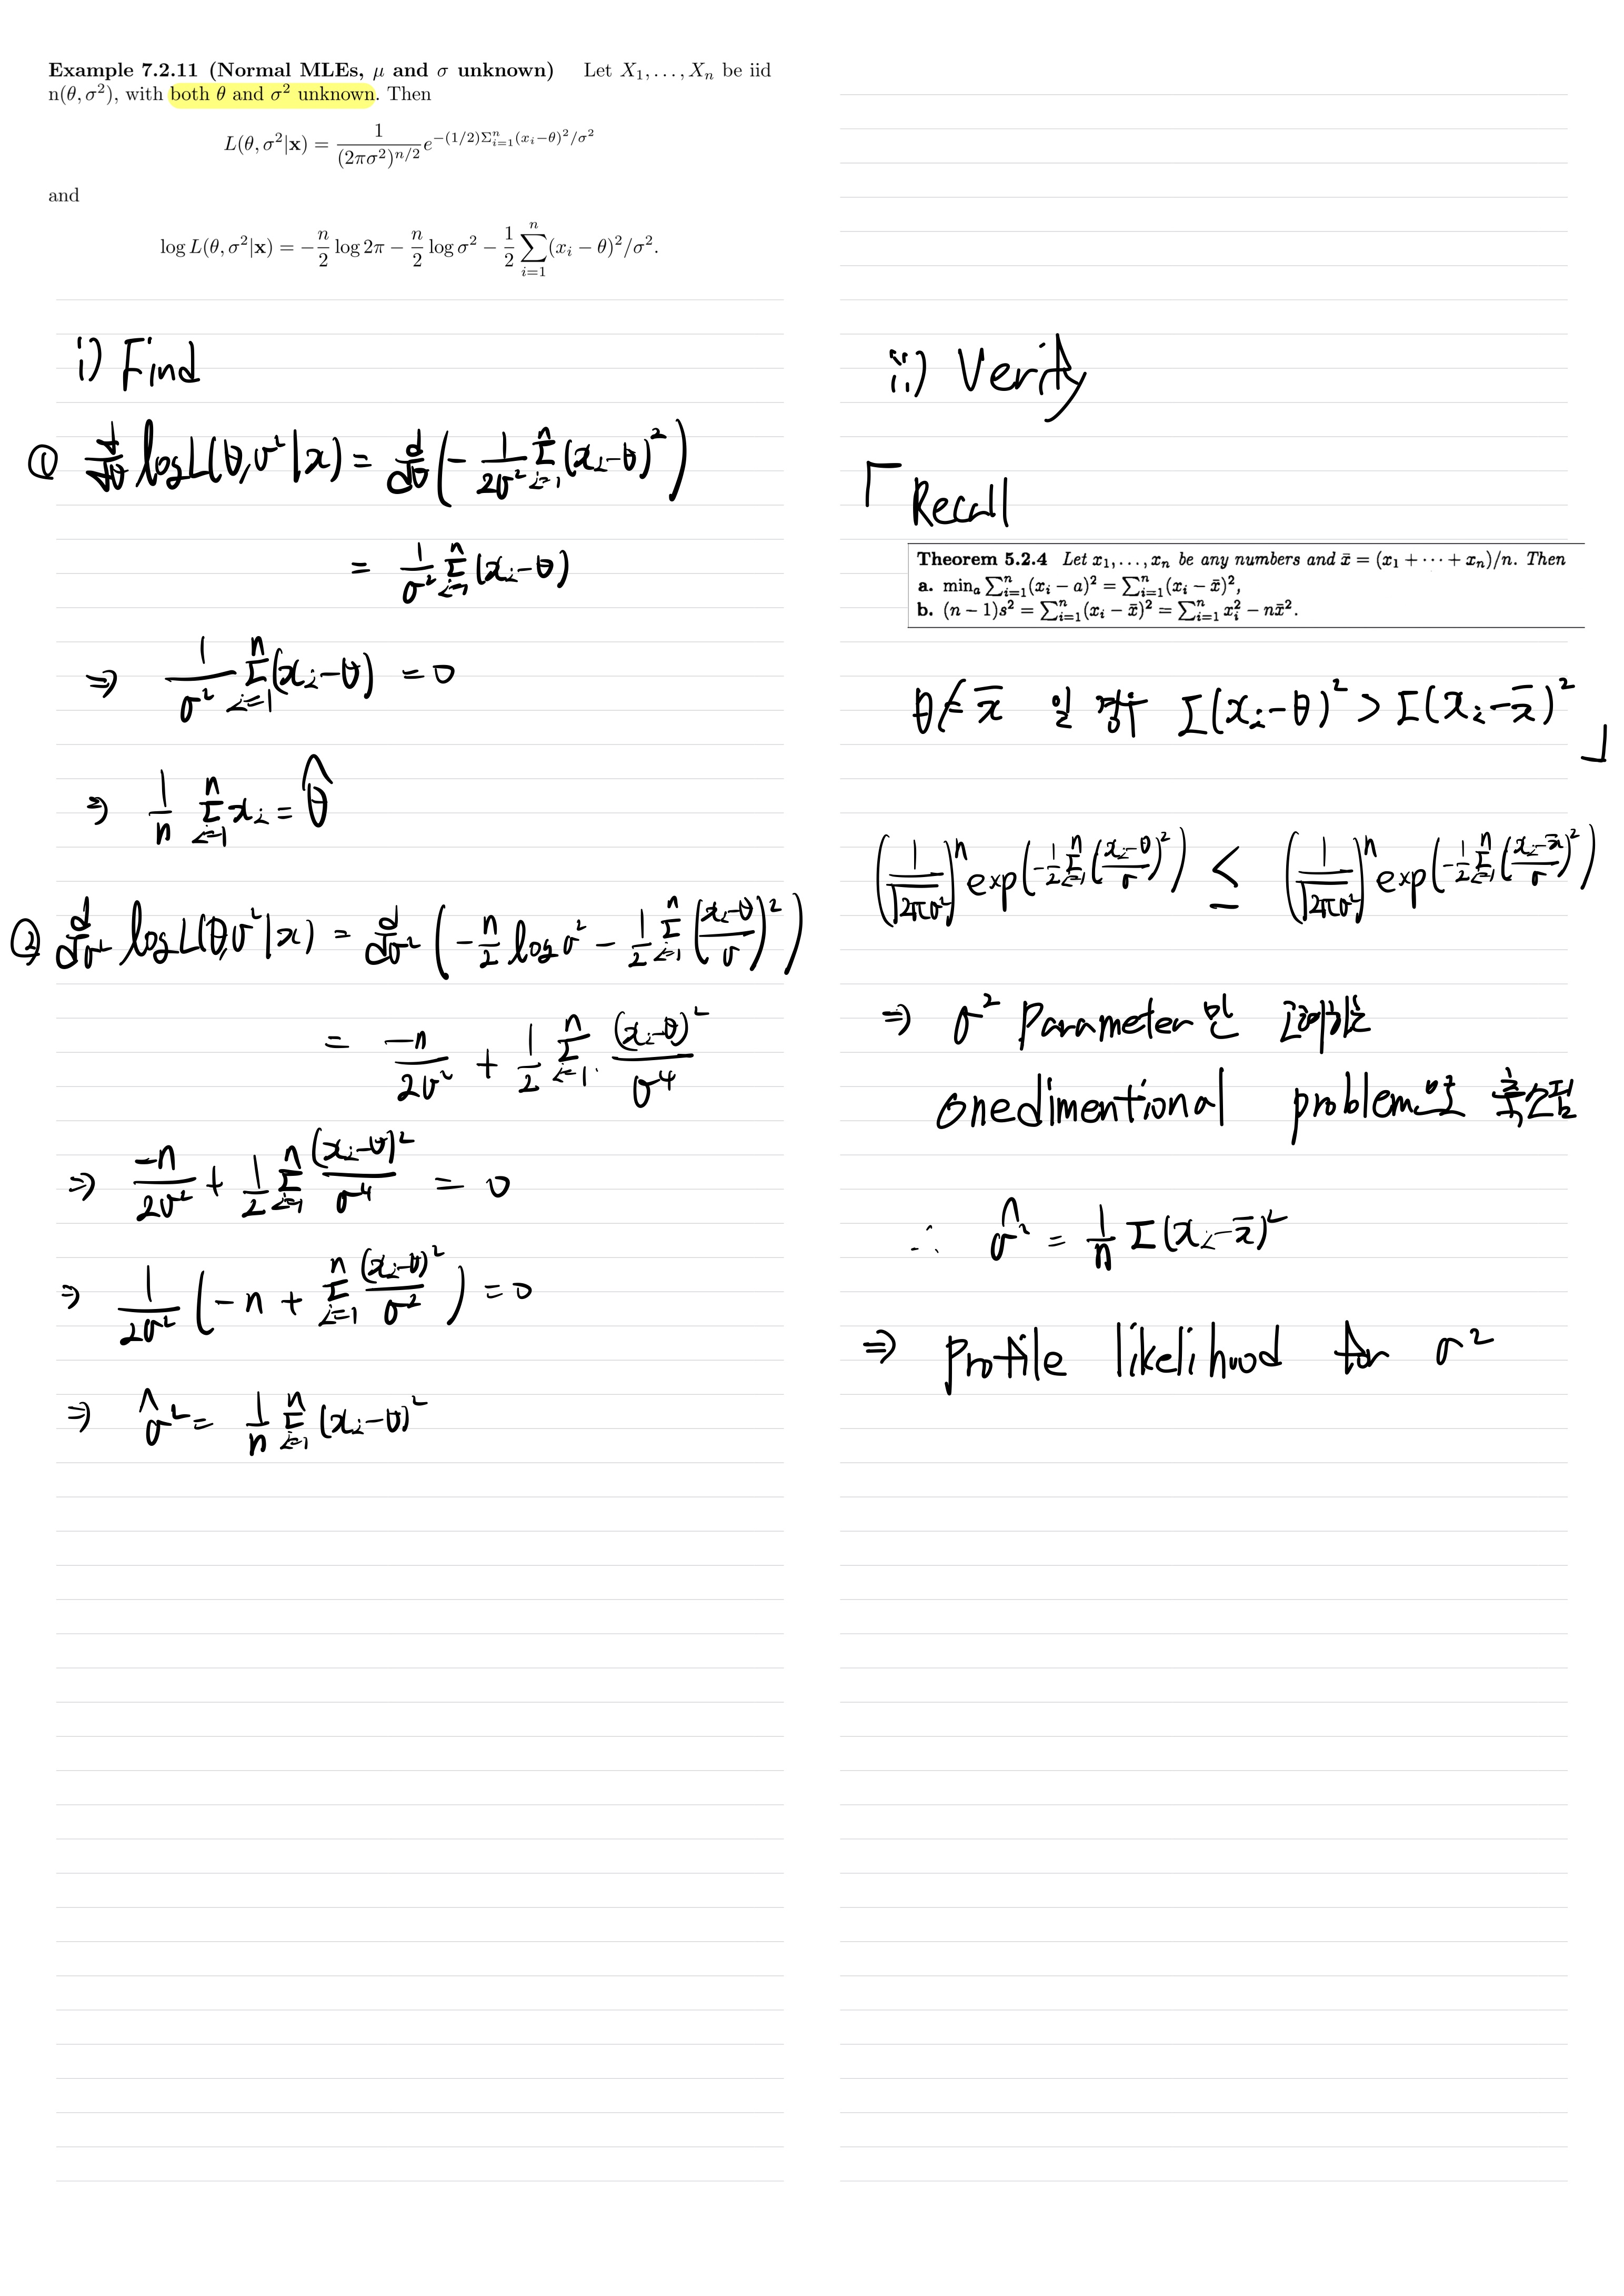 Example 7.2.11 (Normal MLEs, μ and σ unknown) Let X₁, . . . , Xₙ be iid
n(θ, σ²), with both θ and σ² unknown. Then
L(θ, σ²|x) = 1/(2πσ²)^{n/2} e^{-(1/2)Σ_{i=1}^n (x_i−θ)²/σ²}
and
log L(θ, σ²|x) = −n/2 log 2π − n/2 log σ² − 1/2 Σ_{i=1}^n (x_i − θ)²/σ².
i) Find
① d/dθ log L(θ, σ²|x) = d/dθ (− 1/2σ² Σ_{i=1}^n (x_i−θ)²)
= 1/σ² Σ_{i=1}^n (x_i−θ)
⇒ 1/σ² Σ_{i=1}^n (x_i−θ) = 0
⇒ 1/n Σ_{i=1}^n x_i = θ̂
② d/dσ² log L(θ, σ²|x) = d/dσ² (−n/2 log σ² − 1/2 Σ_{i=1}^n ((x_i−θ)/σ)²)
= −n/2σ² + 1/2 Σ_{i=1}^n (x_i−θ)²/σ⁴
⇒ −n/2σ² + 1/2 Σ_{i=1}^n (x_i−θ)²/σ⁴ = 0
⇒ 1/2σ² (−n + Σ_{i=1}^n (x_i−θ)²/σ²) = 0
⇒ σ̂² = 1/n Σ_{i=1}^n (x_i−θ)²
ii) Verify
「 Recall
Theorem 5.2.4 Let x₁, . . . , xₙ be any numbers and x̄ = (x₁ + · · · + xₙ)/n. Then
a. min_a Σ_{i=1}^n (x_i − a)² = Σ_{i=1}^n (x_i − x̄)²,
b. (n − 1)s² = Σ_{i=1}^n (x_i − x̄)² = Σ_{i=1}^n x_i² − nx̄².
θ ≠ x̄ 일 경우 Σ(x_i−θ)² > Σ(x_i−x̄)² 」
(1/√2πσ²)^n exp(−1/2 Σ_{i=1}^n ((x_i−θ)/σ)²) ≤ (1/√2πσ²)^n exp(−1/2 Σ_{i=1}^n ((x_i−x̄)/σ)²)
⇒ σ² Parameter만 고려하는
onedimentional problem으로 축소됨
∴ σ̂² = 1/n Σ(x_i−x̄)²
⇒ Profile likelihood for σ²